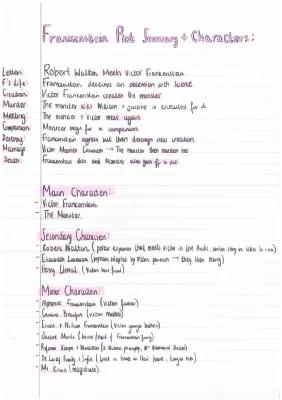 Frankenstein Plot Summary + Characters:
Letters: Robert Walton Meets Victor Frankenstein
F's Life: Frankenstein develops an obsession with science
Creation: Victor Frankenstein creates the monster
Murder: The monster kills William + Justine is executed for it
Meeting: The monster + Victor meet again
Companion: Monster begs for a companion
Destroy: Frankenstein agrees but then destroys new creation
Marriage: Victor Marries Elizabeth → The monster then murders her
Death: Frankenstein dies and Monster also goes to die.
Main Characters:
- Victor Frankenstein
- The Monster.
Secondary Characters:
- Robert Walton (polar explorer that meets Victor in the Arctic, writes story in letter to)
- Elizabeth Lavenza (orphan adopted by Victor parents → they then marry)
- Henry Clerval (Victor best friend)
Minor Characters:
- Alphonse Frankenstein (Victor father)
- Caroline Beaufort (Victor mother)
- Ernest + William Frankenstein (Victor younger brothers)
- Justine Moritz (of Frankenstein family)
- Professor Krempe + Waldman
- De Lacey Family + Safie (lived in house,)
- Mr. Kirwin (magistrate).